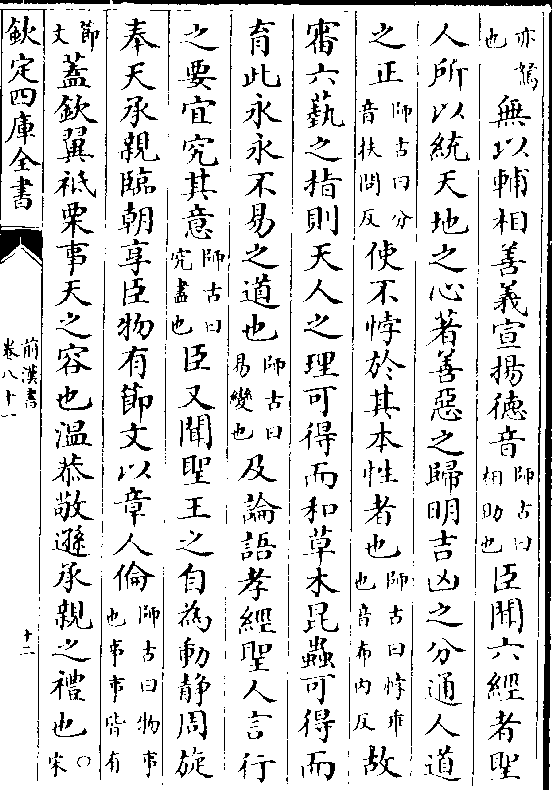 亦駑也無以輔相善義宣揚德音師古曰相助也臣聞六經者聖
人所以統天地之心著善惡之歸明吉凶之分通人道
之正師古曰分音扶問反使不悖於其本性者也師古曰悖乖也音布内反故
審六藝之指則天人之理可得而和草木昆蟲可得而
育此永永不易之道也師古曰易變也及論語孝經聖人言行
之要宜究其意師古曰究盡也臣又聞聖王之自為動靜周旋
奉天承親臨朝享臣物有節文以章人倫師古曰物事也事事皆有
節文蓋欽翼祗栗事天之容也溫恭敬遜承親之禮也○宋
欽定四庫全書
前漢書
卷八十一
十二